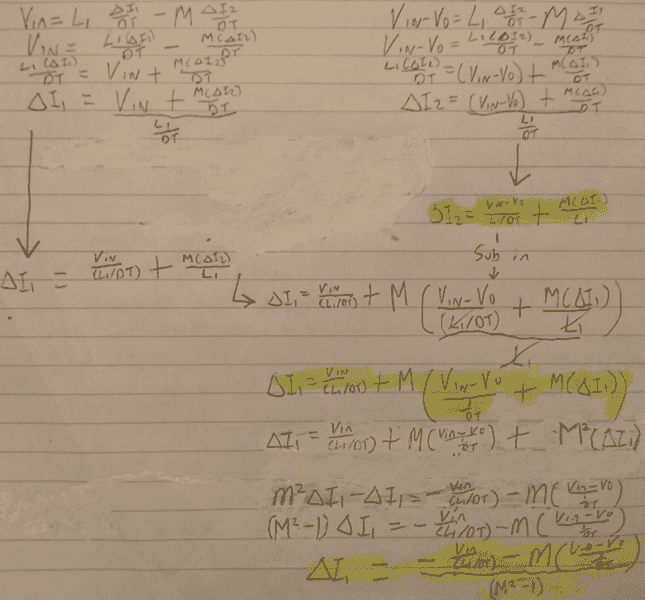 VIN = L1 ΔI1/DT - M ΔI2/DT
VIN = L1(ΔI1)/DT - M(ΔI2)/DT
L1(ΔI1)/DT = VIN + M(ΔI2)/DT
ΔI1 = (VIN + M(ΔI2)/DT) / (L1/DT)
ΔI1 = VIN/(L1/DT) + M(ΔI2)/L1
VIN-VO = L1 ΔI2/DT - M ΔI1/DT
VIN-VO = L1(ΔI2)/DT - M(ΔI1)/DT
L1(ΔI2)/DT = (VIN-VO) + M(ΔI1)/DT
ΔI2 = ((VIN-VO) + M(ΔI1)/DT) / (L1/DT)
ΔI2 = VIN-VO/(L1/DT) + M(ΔI1)/L1
Sub in
ΔI1 = VIN/(L1/DT) + M(VIN-VO/(L1/DT) + M(ΔI1)/L1) / L1
ΔI1 = VIN/(L1/DT) + M(VIN-VO/(1/DT) + M(ΔI1))
ΔI1 = VIN/(L1/DT) + M(VIN-VO/(1/DT)) + M²(ΔI1)
M²ΔI1 - ΔI1 = - Vin/(L1/DT) - M(Vin-VO/(1/DT))
(M²-1)ΔI1 = - Vin/(L1/DT) - M(Vin-VO/(1/DT))
ΔI1 = (- Vin/(L1/DT) - M(Vin-VO/(1/DT))) / (M²-1)